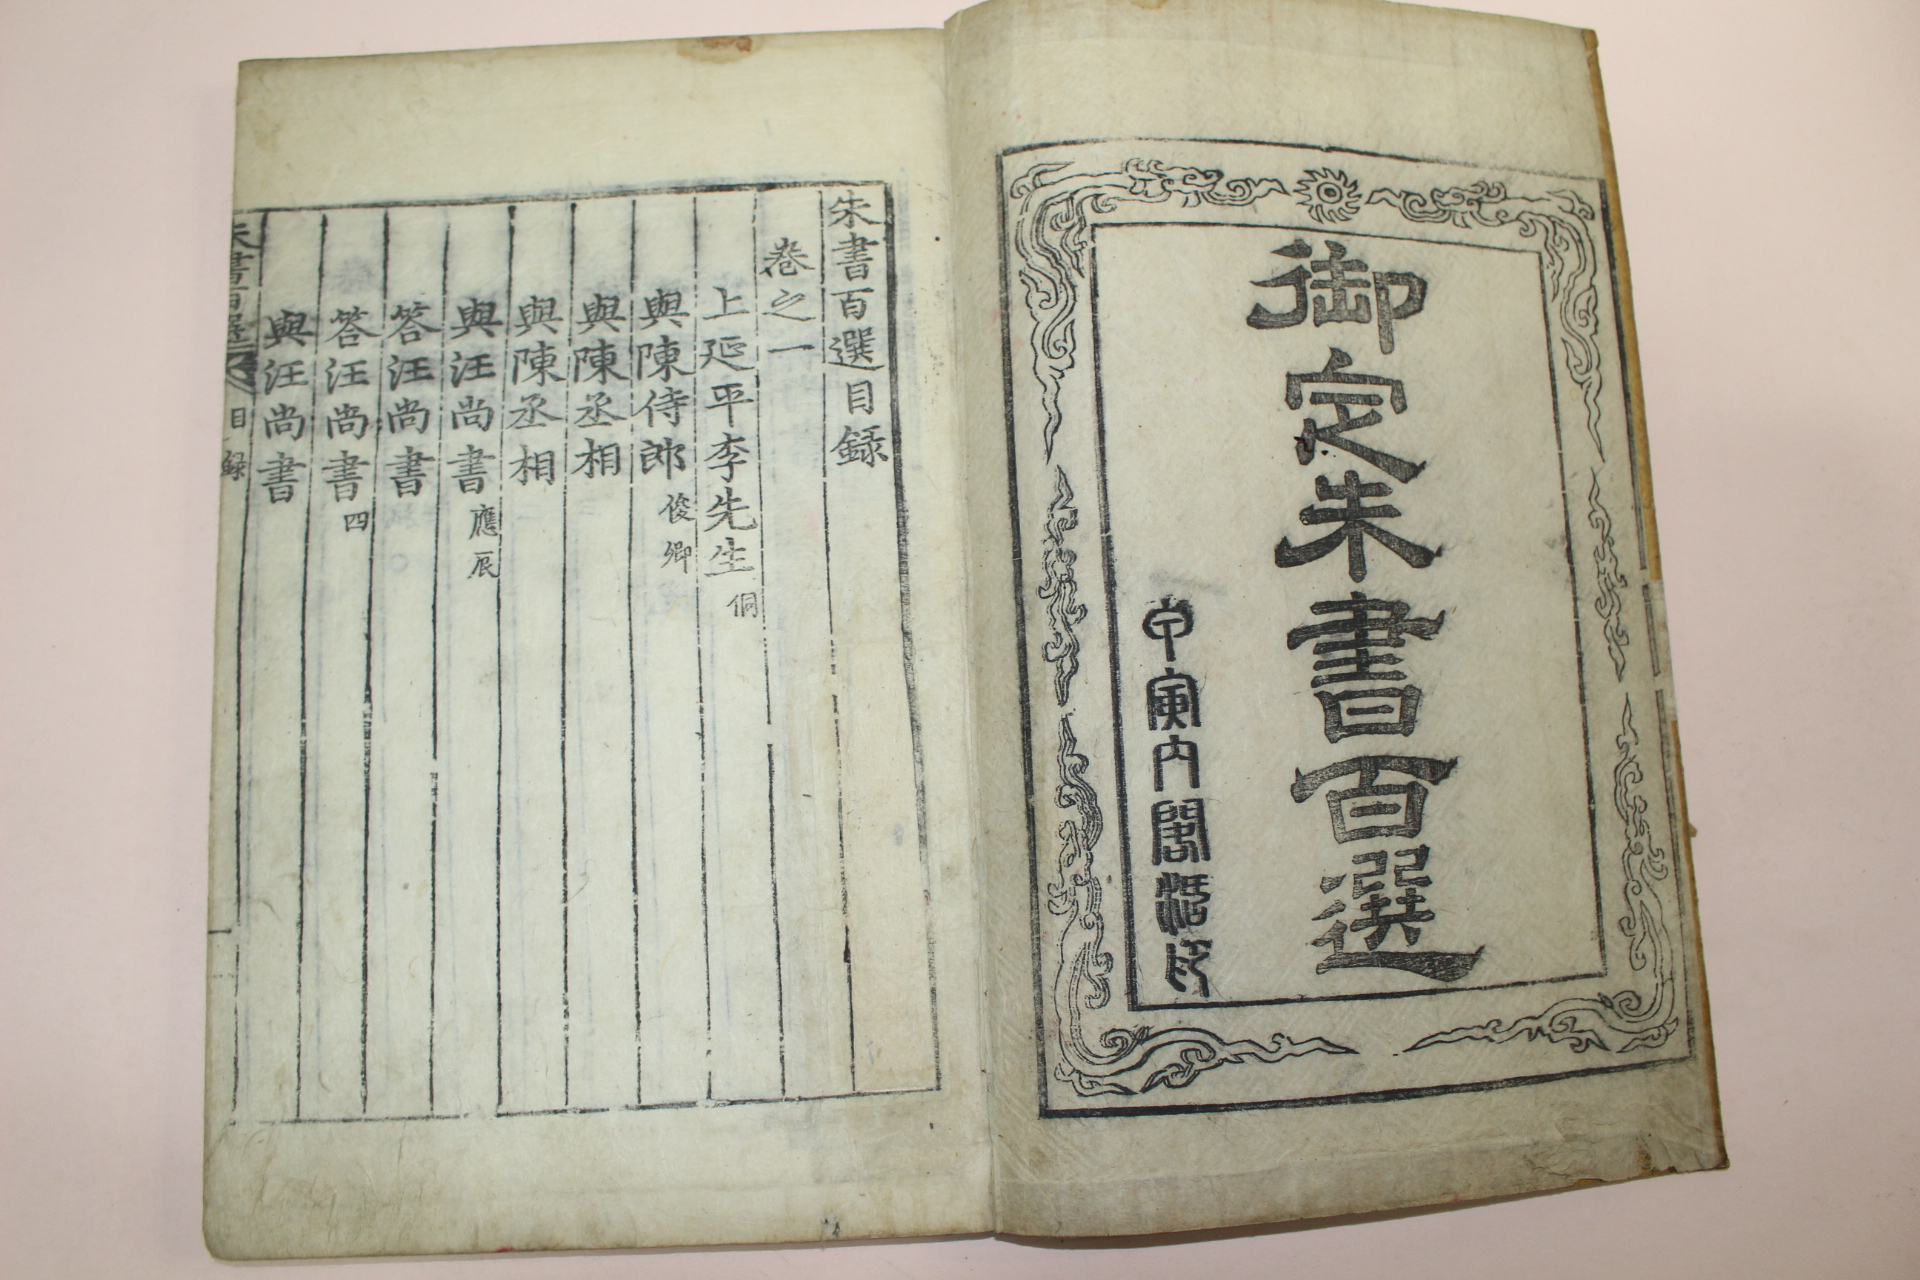 御定朱書百選
甲寅内閣活印
朱書百選目録
卷之一
上延平李先生 侗
與陳侍郎 俊卿
與陳丞相
與陳丞相
與汪尚書 應辰
答汪尚書
答汪尚書 四
與汪尚書
朱書百選 目録 一